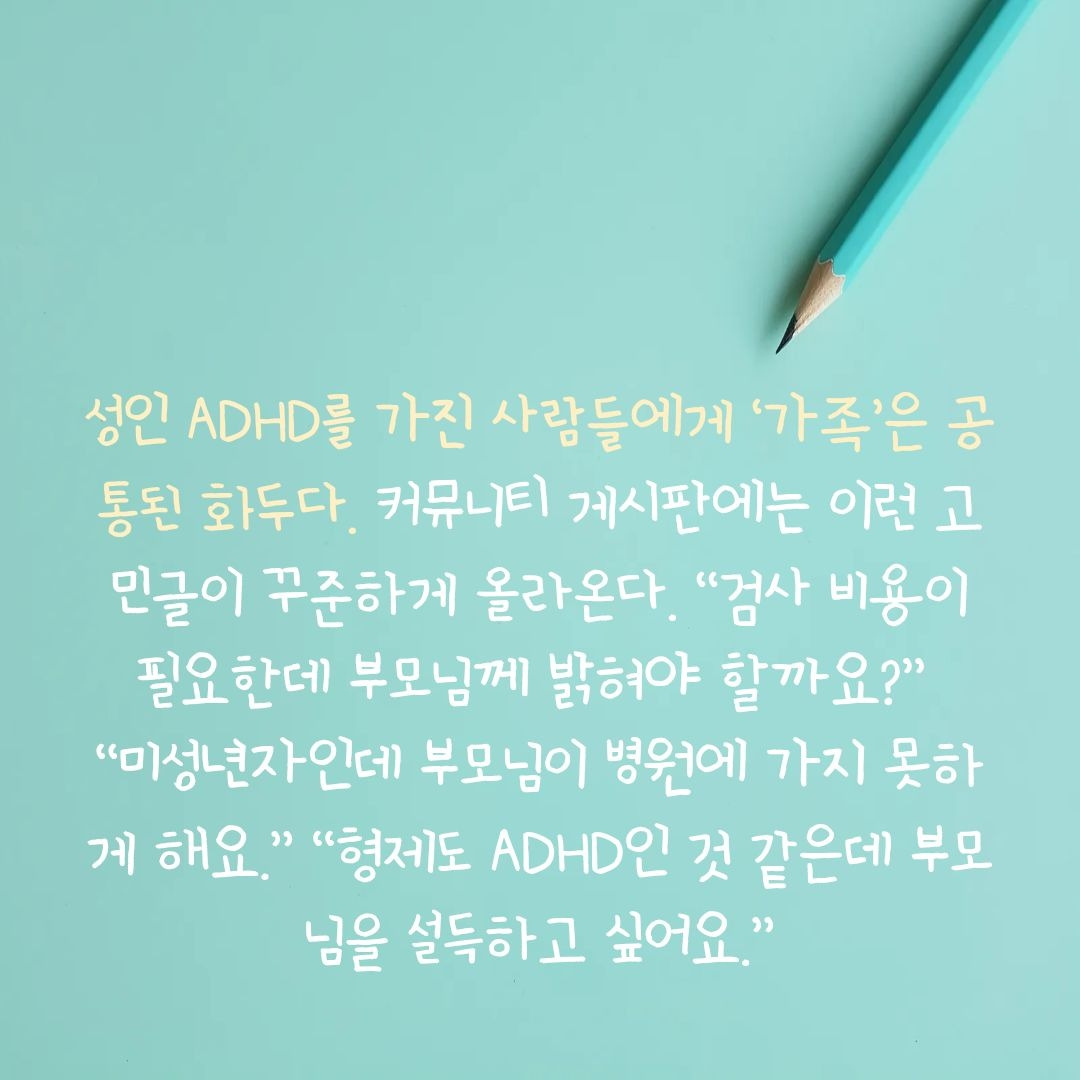 성인 ADHD를 가진 사람들에게 ‘가족’은 공
통된 화두다. 커뮤니티 게시판에는 이런 고
민글이 꾸준하게 올라온다. “검사 비용이
필요한데 부모님께 밝혀야 할까요?”
“미성년자인데 부모님이 병원에 가지 못하
게 해요.” “형제도 ADHD인 것 같은데 부모
님을 설득하고 싶어요.”